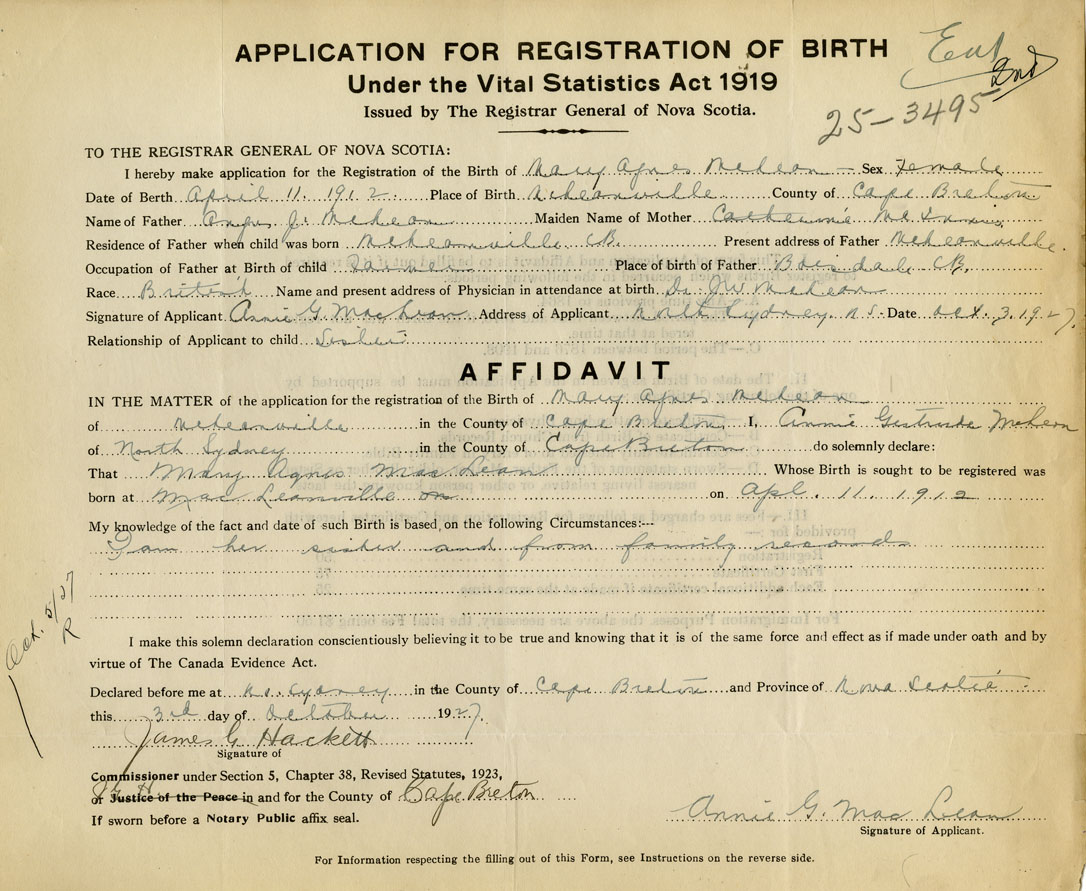 APPLICATION FOR REGISTRATION OF BIRTH
Under the Vital Statistics Act 1919
Issued by The Registrar General of Nova Scotia.
Ent
2nd
25-3495
TO THE REGISTRAR GENERAL OF NOVA SCOTIA:
I hereby make application for the Registration of the Birth of Mary Agnes McLean Sex Female
Date of Berth April 11. 1912. Place of Birth McLeanville County of Cape Breton
Name of Father Angus J. McLean Maiden Name of Mother Catherine
Residence of Father when child was born McLeanville C.B. Present address of Father McLeanville.
Occupation of Father at Birth of child Farmer Place of birth of Father Boisdale C.B.
Race British Name and present address of Physician in attendance at birth Dr. J.W. McLean
Signature of Applicant Annie G. MacLean Address of Applicant North Sydney. N.S. Date Oct. 3. 1927.
Relationship of Applicant to child Sister
AFFIDAVIT
IN THE MATTER of the application for the registration of the Birth of Mary Agnes McLean
of McLeanville in the County of Cape Breton I, Annie Gertrude McLean
of North Sydney in the County of Cape Breton do solemnly declare:
That Mary Agnes MacLean Whose Birth is sought to be registered was
born at MacLeanville on on Apl. 11. 1912
My knowledge of the fact and date of such Birth is based, on the following Circumstances:---
I am her sister and from family records
Oct. 5/27
R
I make this solemn declaration conscientiously believing it to be true and knowing that it is of the same force and effect as if made under oath and by
virtue of The Canada Evidence Act.
Declared before me at No. Sydney in the County of Cape Breton and Province of Nova Scotia
this 3rd day of October 1927.
James G Hackett
Signature of
Commissioner under Section 5, Chapter 38, Revised Statutes, 1923,
or Justice of the Peace in and for the County of Cape Breton
If sworn before a Notary Public affix seal.
Annie G. MacLean
Signature of Applicant.
For Information respecting the filling out of this Form, see Instructions on the reverse side.